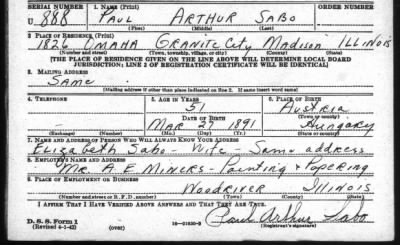 SERIAL NUMBER 1. NAME (Print) ORDER NUMBER
U 888 PAUL ARTHUR SABO
(First) (Middle) (Last)
2. PLACE OF RESIDENCE (Print)
1826 OMAHA GRANITE CITY Madison ILLINOIS
(Number and street) (Town, township, village, or city) (County) (State)
[THE PLACE OF RESIDENCE GIVEN ON THE LINE ABOVE WILL DETERMINE LOCAL BOARD
JURISDICTION; LINE 2 OF REGISTRATION CERTIFICATE WILL BE IDENTICAL]
3. MAILING ADDRESS
Same
[Mailing address if other than place indicated on line 2. If same insert word same]
4. TELEPHONE 5. AGE IN YEARS 6. PLACE OF BIRTH
51 Austria
DATE OF BIRTH (Town or county)
MAR 27 1891 Hungary
(Exchange) (Number) (Mo.) (Day) (Yr.) (State or country)
7. NAME AND ADDRESS OF PERSON WHO WILL ALWAYS KNOW YOUR ADDRESS
Elizabeth Sabo - Wife - Same address
8. EMPLOYER'S NAME AND ADDRESS
Mr. A. E. Miners - Painting & Papering
9. PLACE OF EMPLOYMENT OR BUSINESS
Woodriver Illinois
(Number and street or R. F. D. number) (Town) (County) (State)
I AFFIRM THAT I HAVE VERIFIED ABOVE ANSWERS AND THAT THEY ARE TRUE.
D. S. S. Form 1
(Revised 4-1-42) (over) Paul Arthur Sabo
(Registrant's signature)